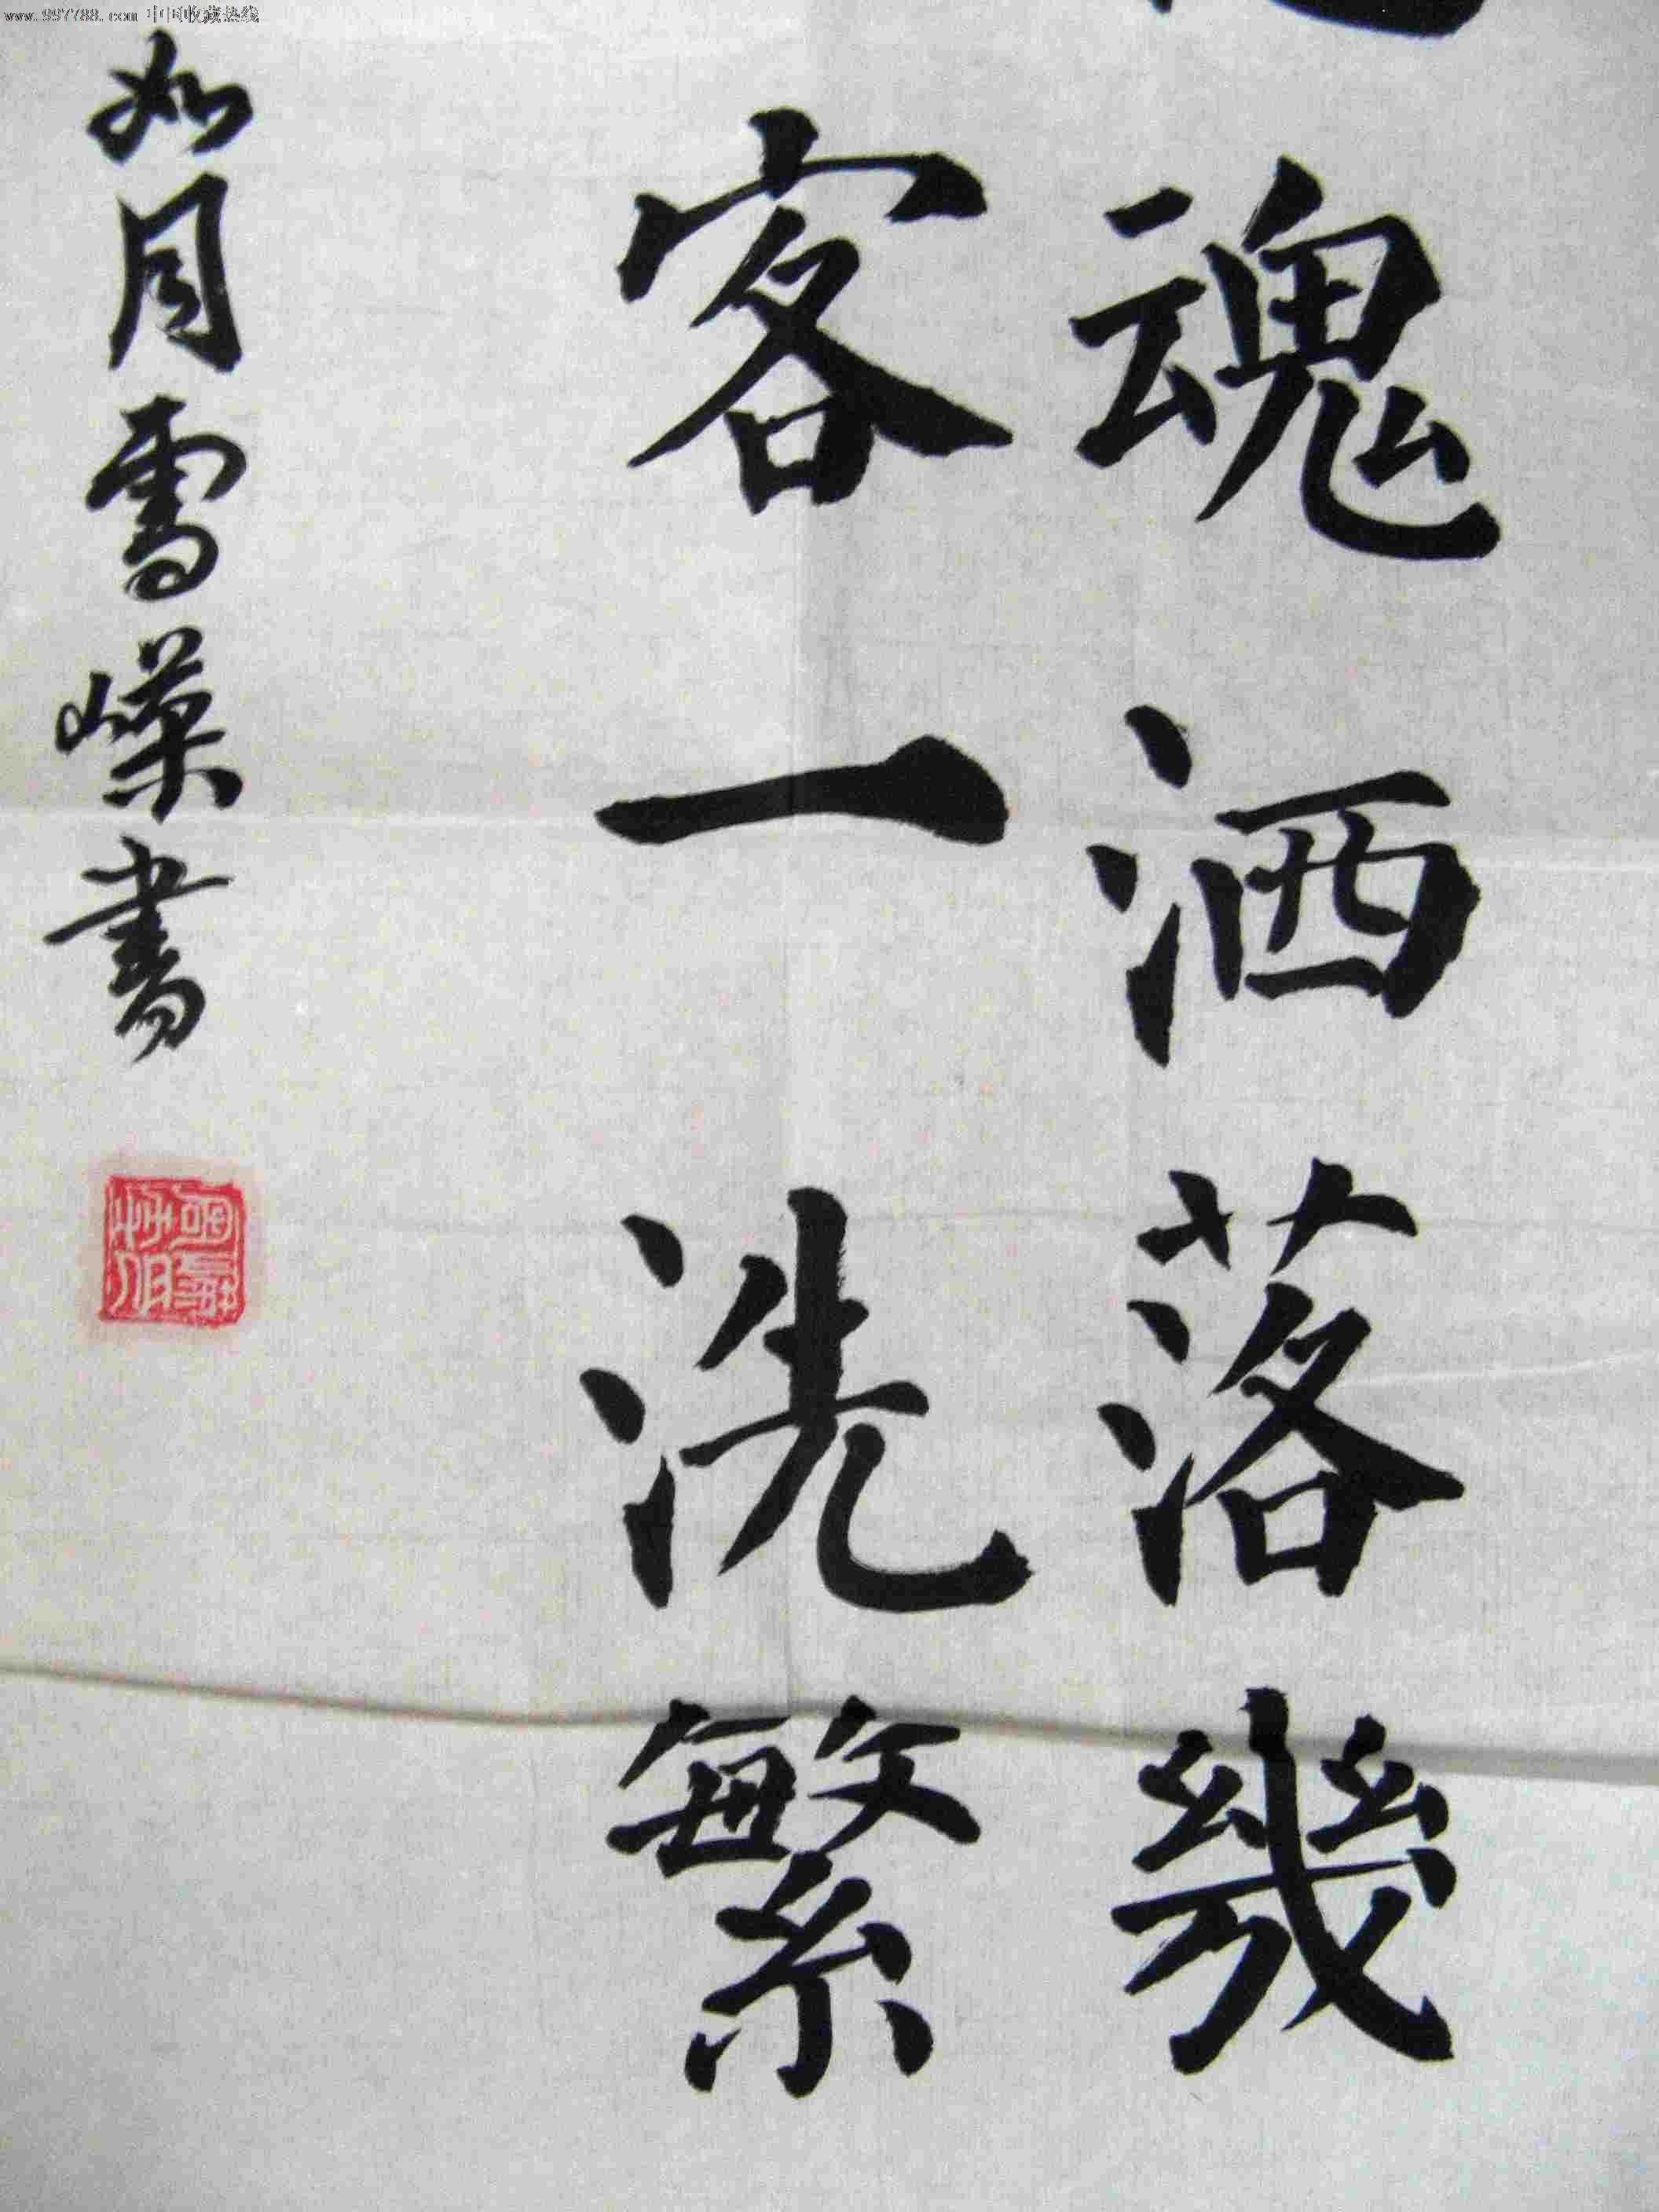 www.997788.com 中国收藏热线
魂洒落幾
客一洗繁
如月雪
書